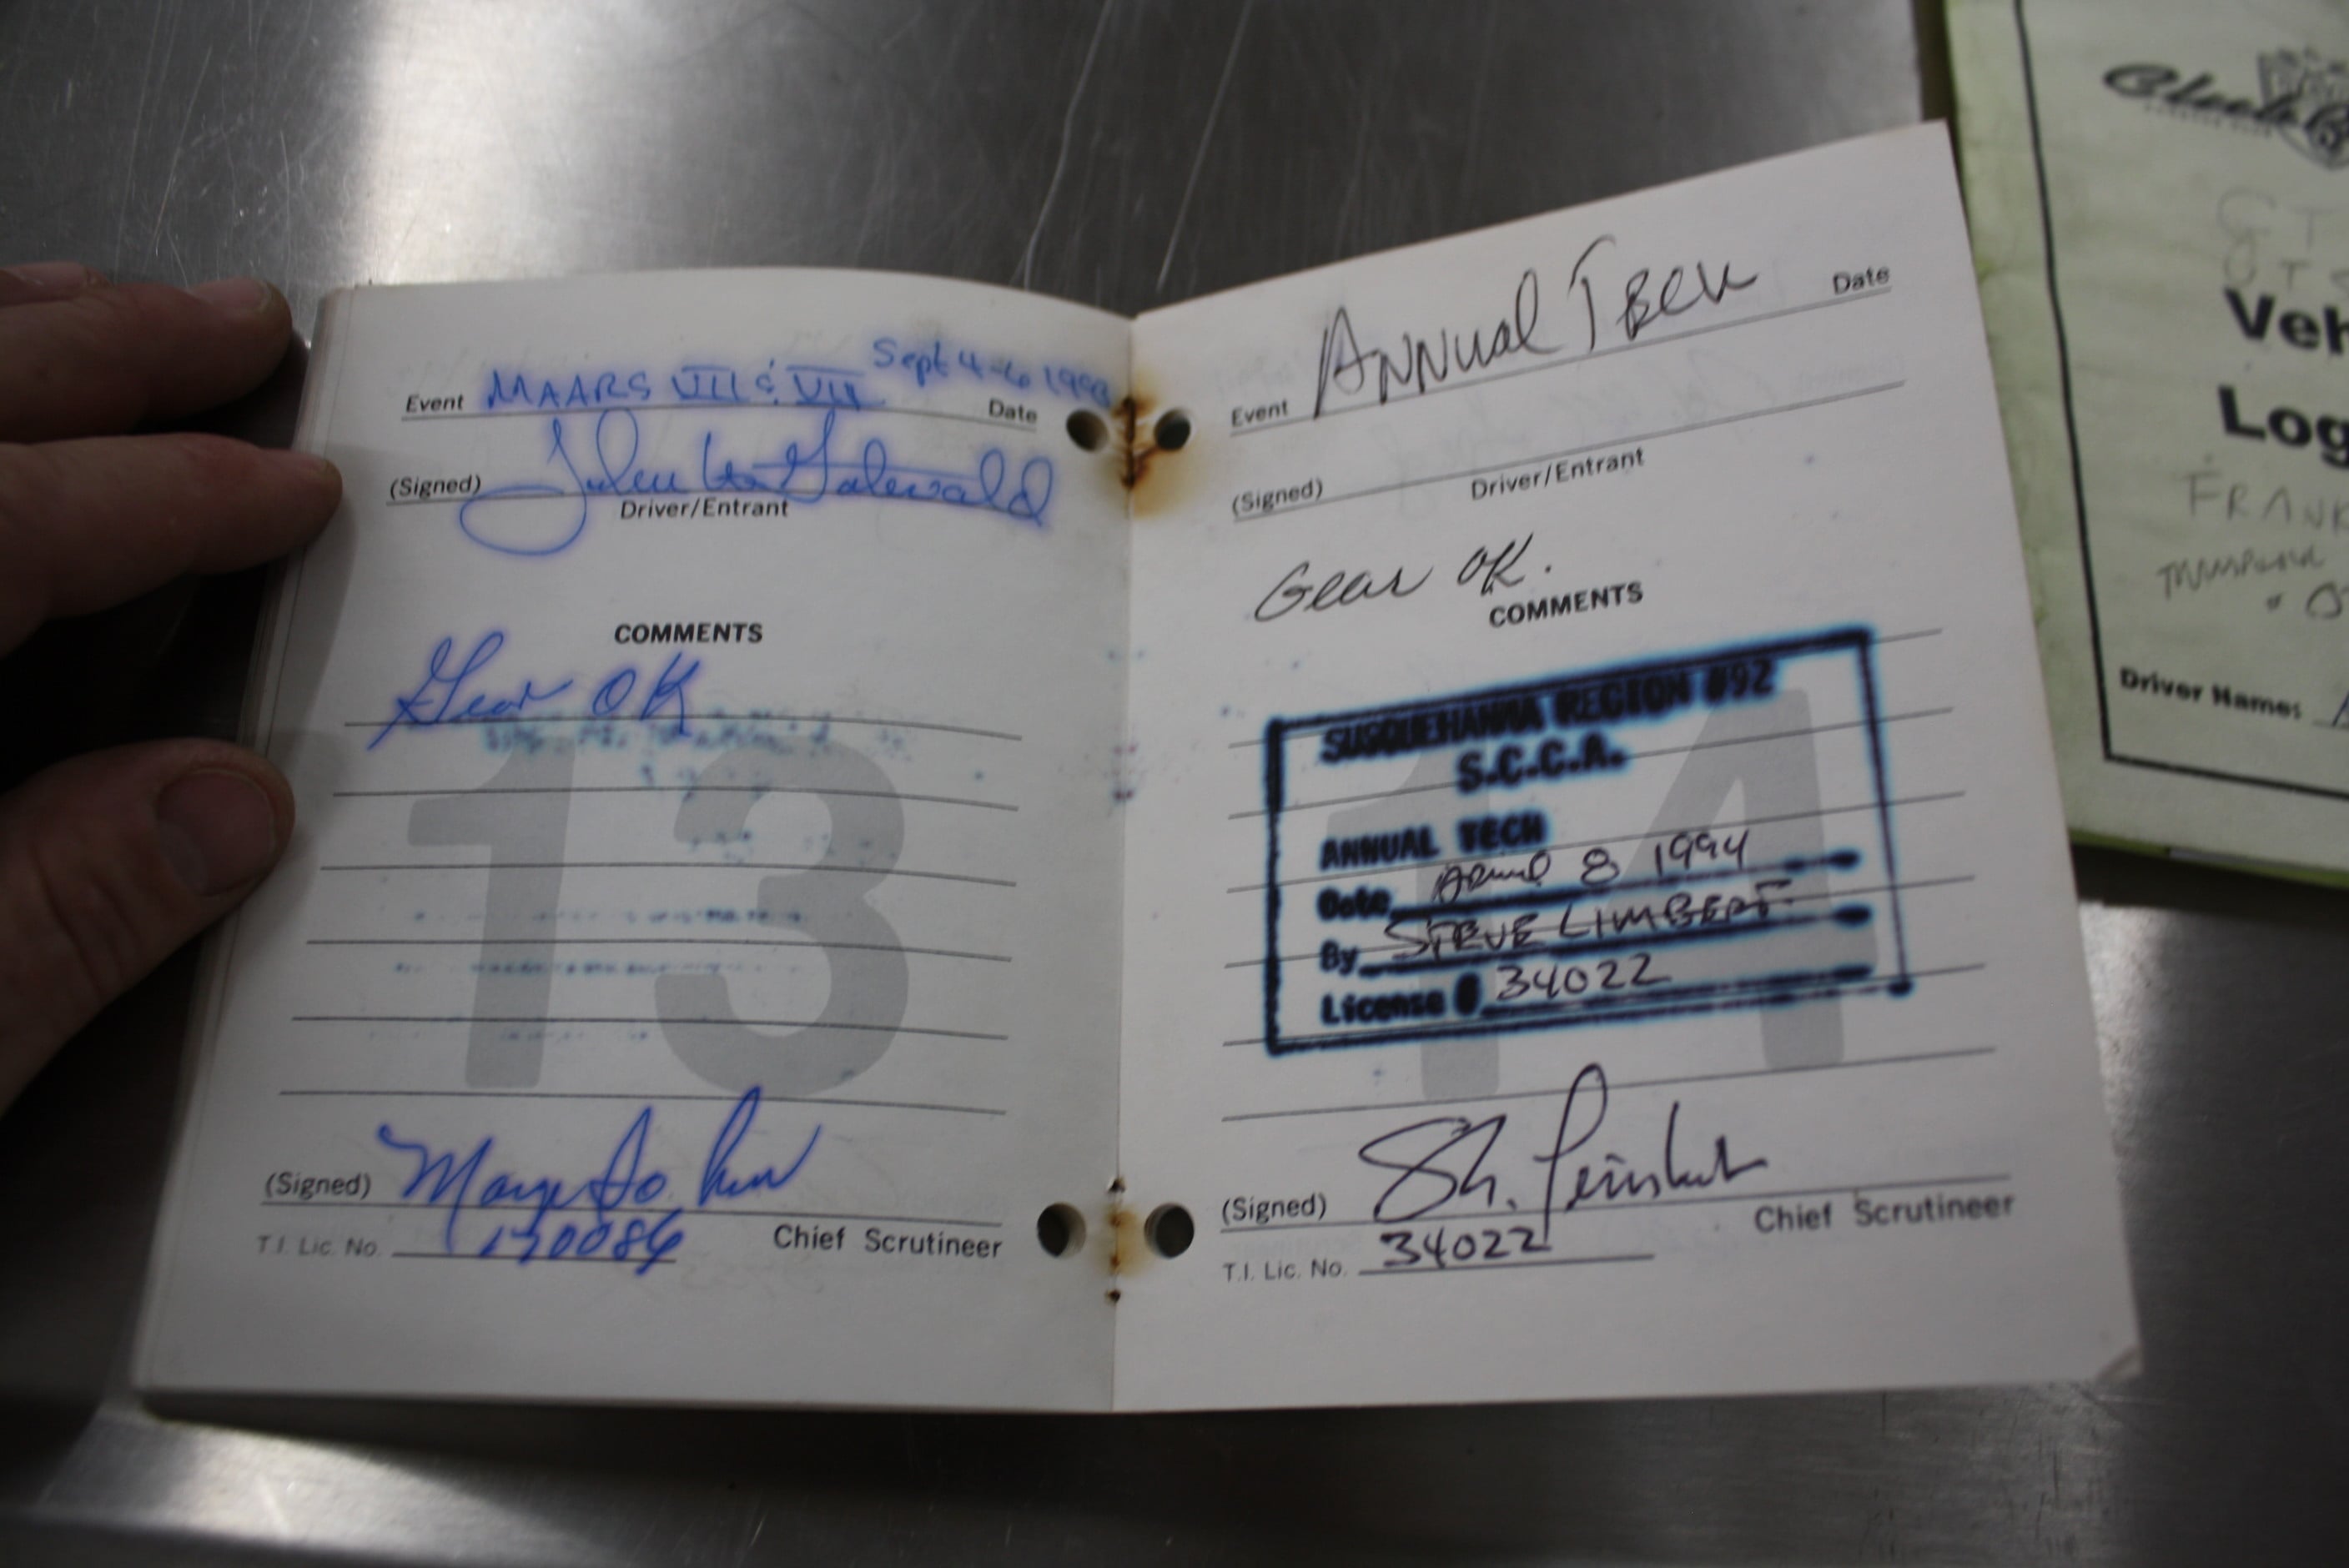 Event MAARS VII & VIII Sept 4-6 Date
(Signed)
Driver/Entrant
COMMENTS
Gear OK
13
(Signed)
T.I. Lic. No. 130086 Chief Scrutineer
Event Annual Tech Date
(Signed) Driver/Entrant
Gear OK.
COMMENTS
SUSQUEHANNA REGION #92
S.C.C.A.
ANNUAL TECH
Date April 8 1994
By STEVE LIMBERT
License # 34022
14
(Signed)
Chief Scrutineer
T.I. Lic. No. 34022
Veh
Log
FRANK
Driver Name: